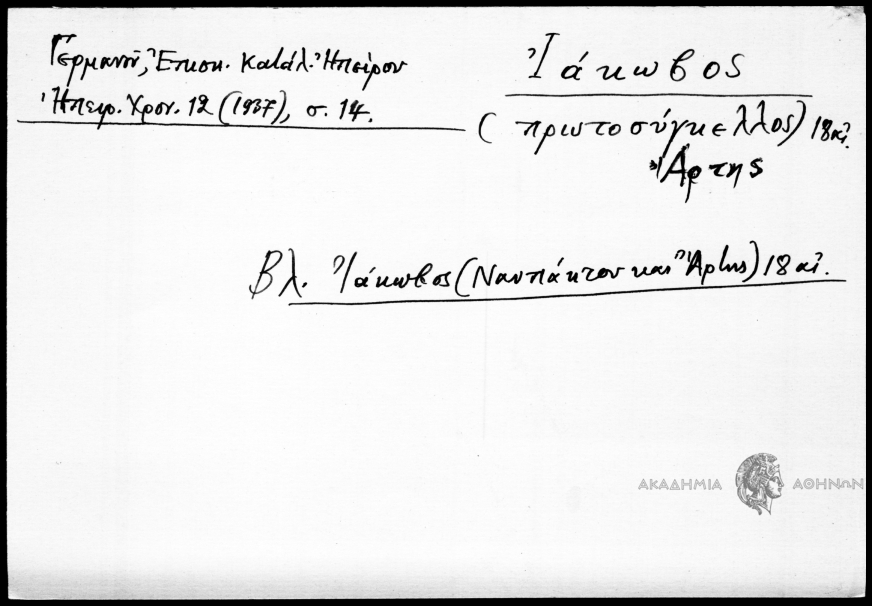 Γερμανοῦ, Ἐπισκ. Κατάλ. Ἠπείρου
Ἠπειρ. Χρον. 12 (1937), σ. 14.
Ἰάκωβος
(πρωτοσύγκελλος) 18 αἰ.
Ἄρτης
Βλ. Ἰάκωβος (Ναυπάκτου καὶ Ἄρτης) 18 αἰ.
ΑΚΑΔΗΜΙΑ ΑΘΗΝΩΝ